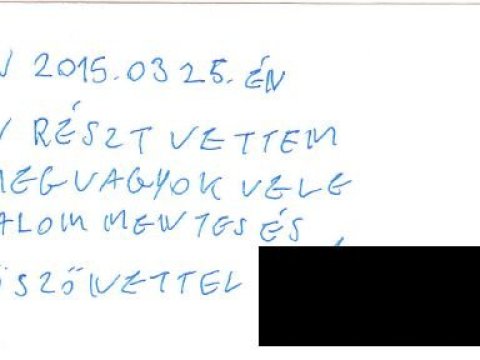 2015.03 25.ÉN
RÉSZT VETTEM
MEGVAGYOK VELE
ALOM MENTES ÉS
ÖSZÖVETTEL